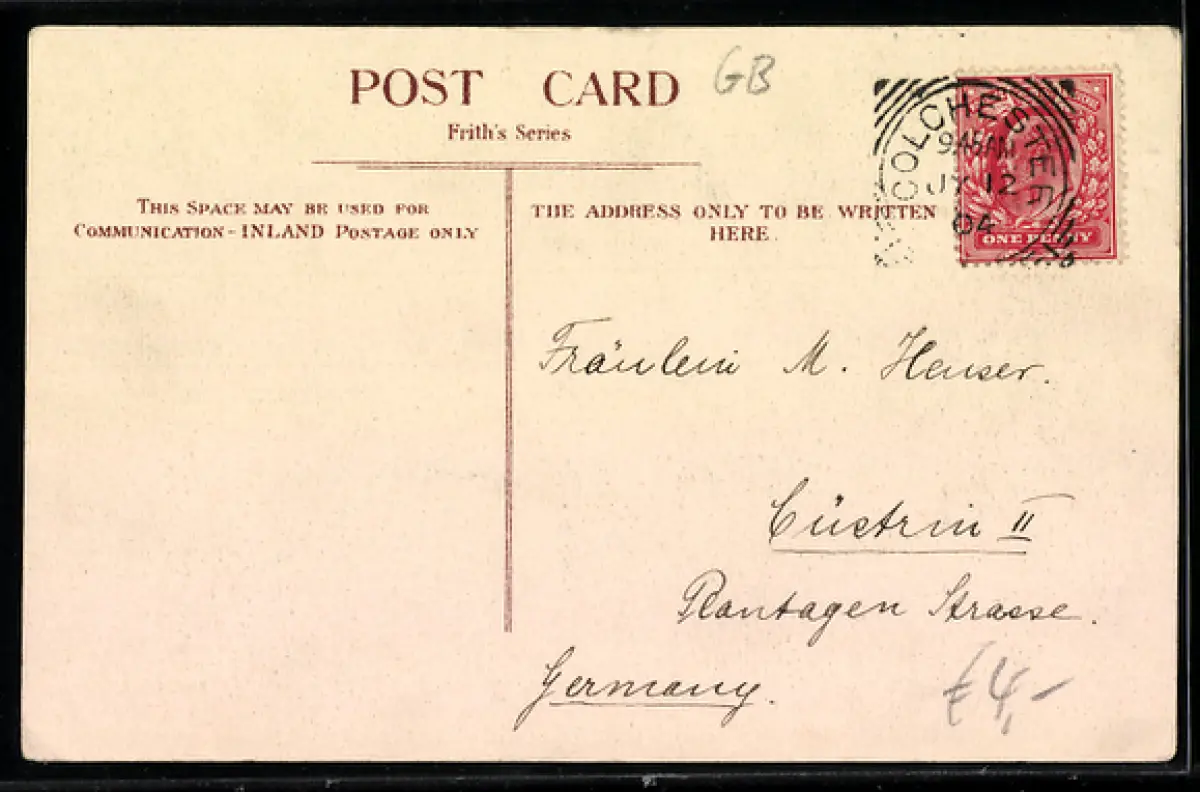 POST CARD
GB
Frith's Series
THIS SPACE MAY BE USED FOR
COMMUNICATION - INLAND POSTAGE ONLY
THE ADDRESS ONLY TO BE WRITTEN
HERE
COLCHESTER
JY 12
04
ONE PENNY
Fräulein M. Henser.
Cüstrin II
Plantagen Strasse.
Germany.
€4,-